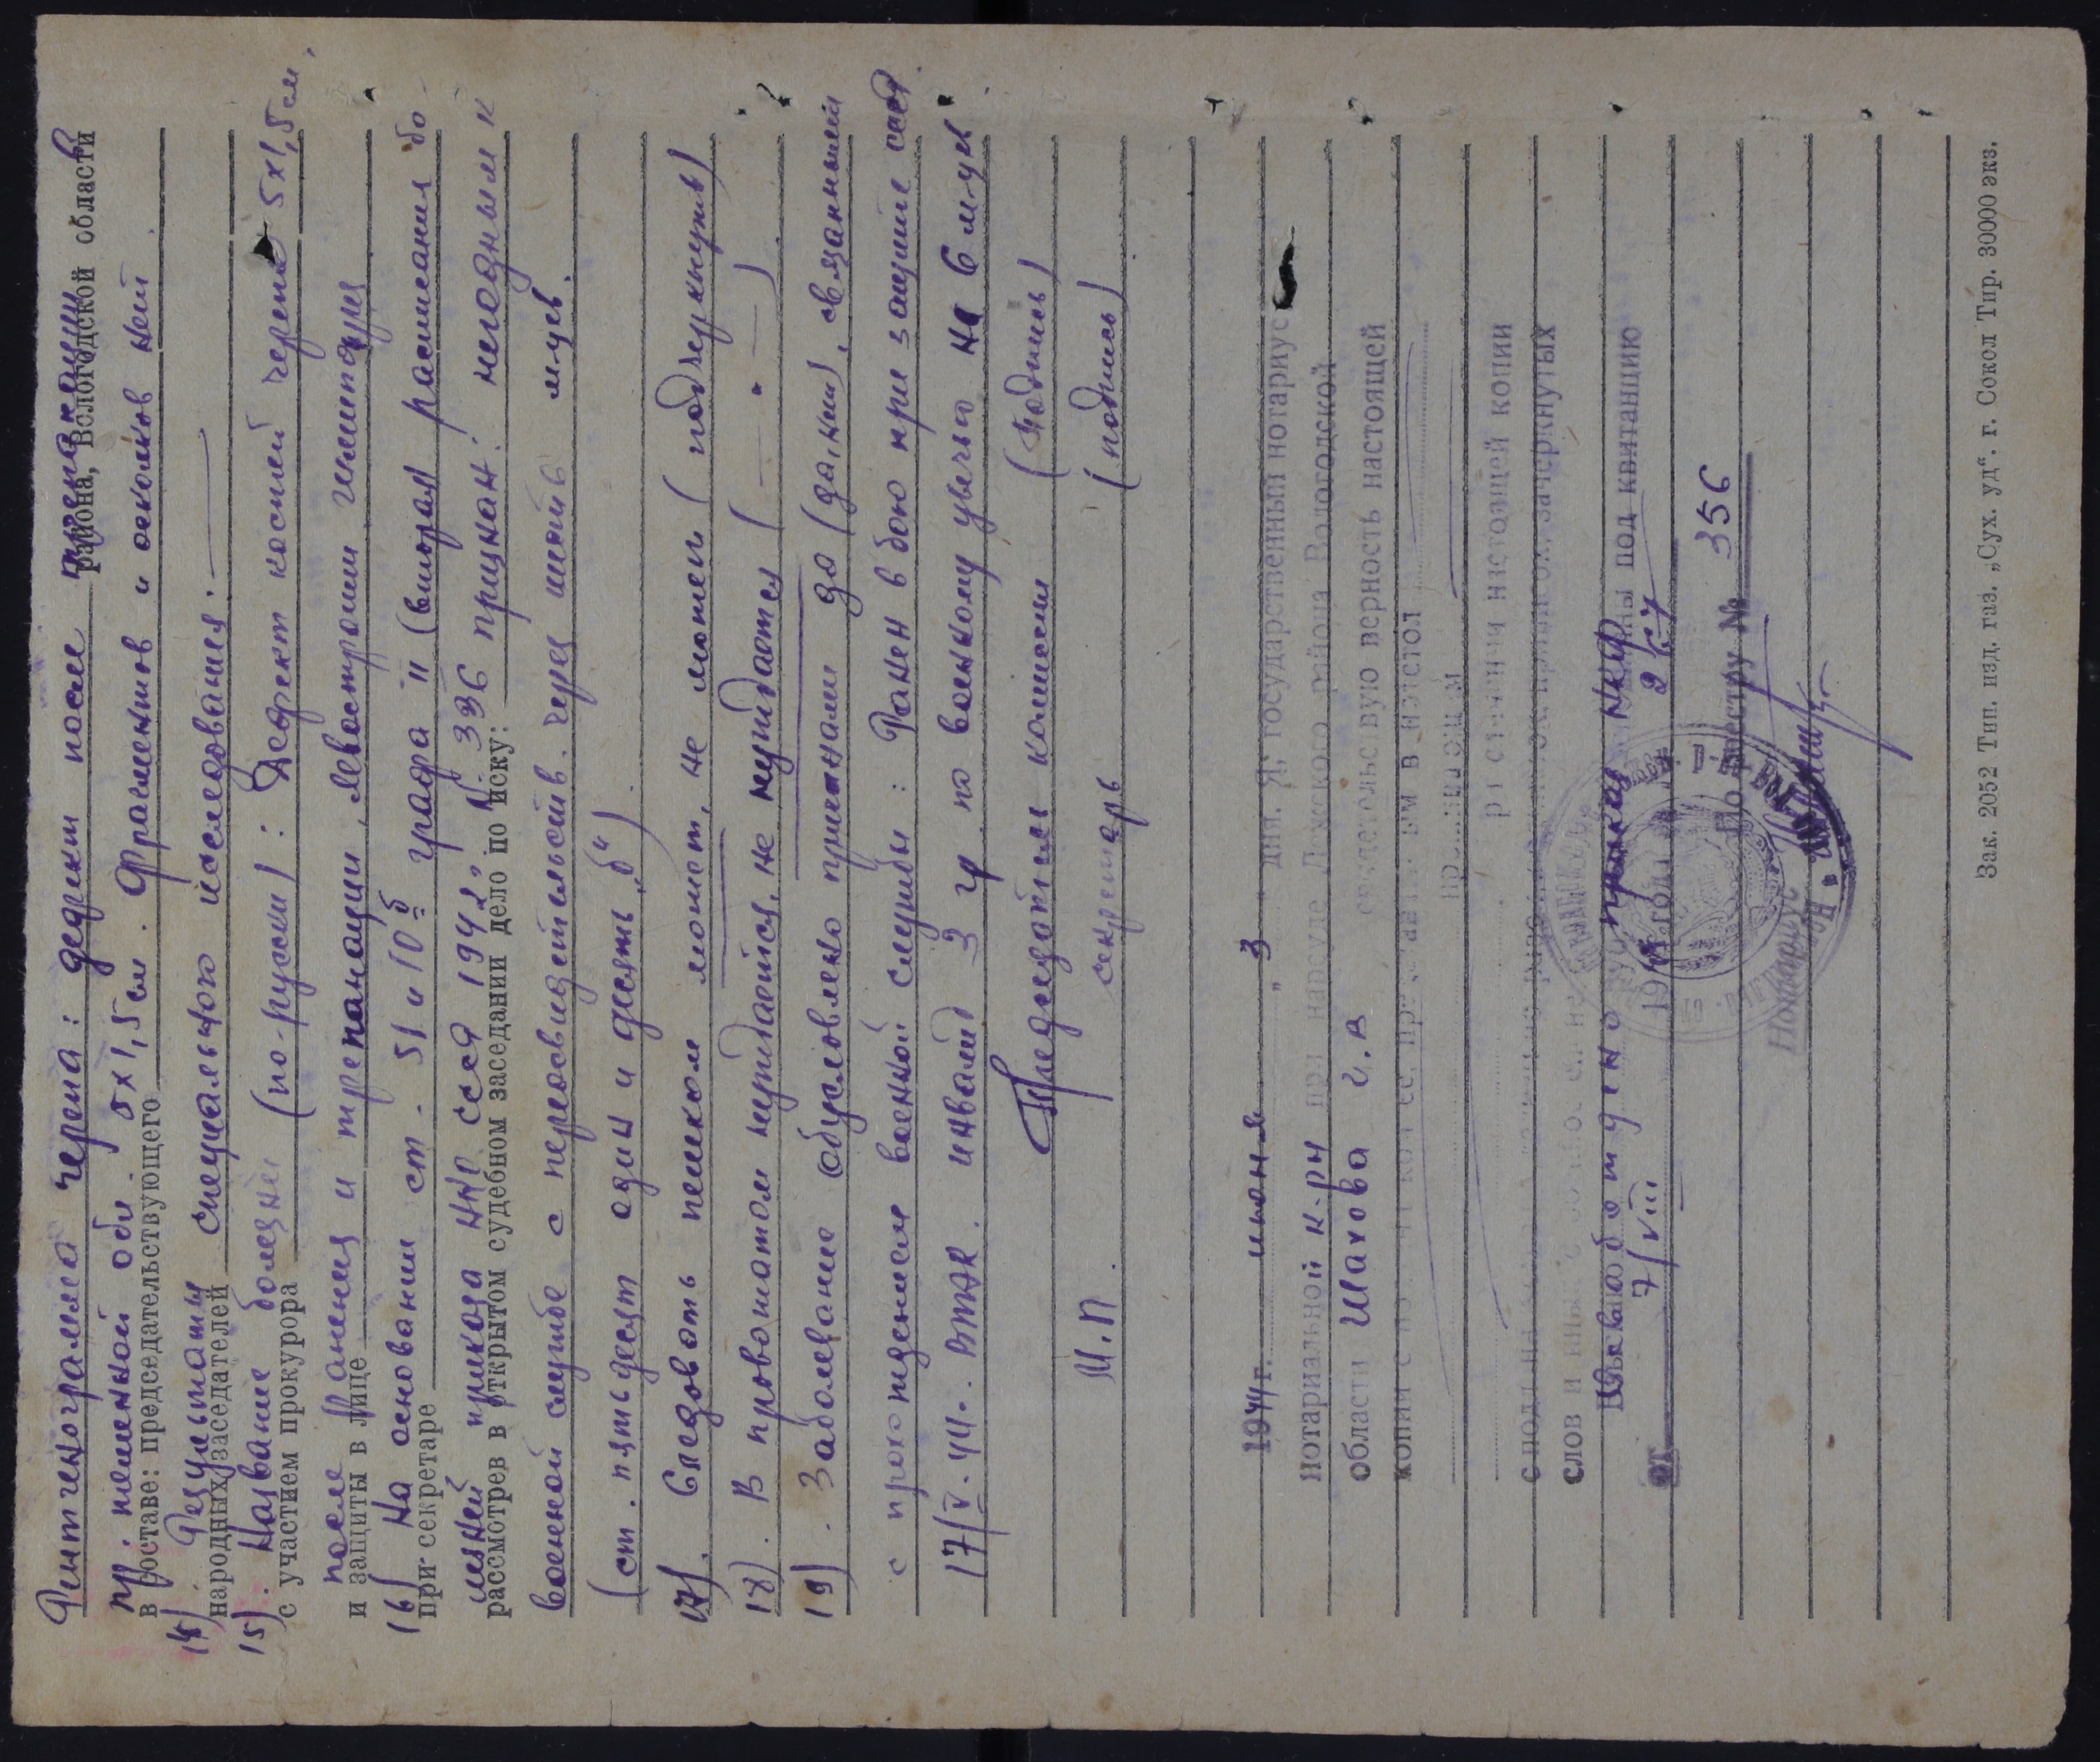 Рентгенограмма черепа: дефекты после трепанации
района, Вологодской области
пр. теменной обл. 5х1,5 см. Фрагментов и осколков нет.
в составе: председательствующего
14) Результаты специального исследования. ———
народных заседателей
15). Название болезни (по-русски): Дефект костей черепа 5х1,5 см.
с участием прокурора
после ранения и трепанации, левосторонн
и защиты в лице
16) На основании ст. 51 и 10 б графа II (вторая) расписания бо-
при секретаре
лезней приказа НКО СССР 1942 г. № 336 признан: негодным к
рассмотрев в открытом судебном заседании дело по иску:
военной службе с переосвидетельств. через шесть м-цев.
(ст. пятьдесят один и десять „б").
17). Следовать пешком может, не может (подчеркнуть)
18). В провожатом нуждается, не нуждается ( —— " —— ).
19). Заболевание обусловлено причинами да (да, нет), связанными
с прохождением военной службы: Ранен в бою при защите СССР
17/V-44. ВТЭК. инвалид 3 гр по военному увечью на 6 м-цев
Председатель комиссии (подпись)
М.П. секретарь (подпись)
1944 г. июня „ 3 " дня. Я, государственный нотариус
нотариальной к-ры при нарсуде района Вологодской
области Шахова г. в свидетельствую верность настоящей
копии с
настоящей копии
слов и зачеркнутых
приказа НКФ под квитанцию
от 7/VIII 19 года
По реестру № 356
Нотариус
Зак. 2052 Тип. изд. газ. „Сух. уд". г. Сокол Тир. 30000 экз.